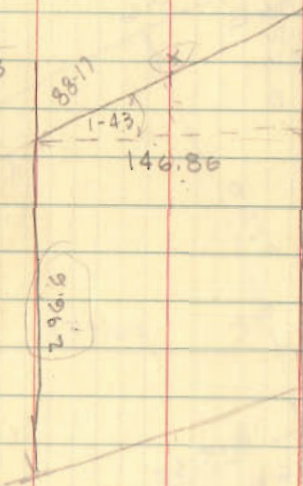 88-17
1-43
146.86
296.6